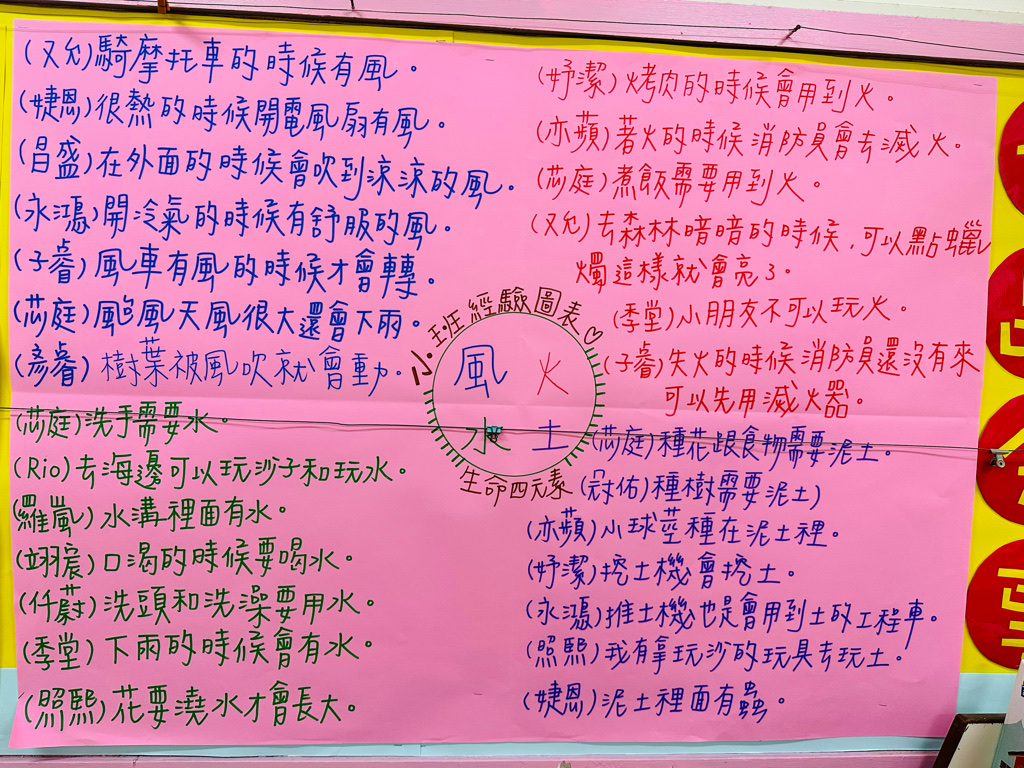 (又允)騎摩托車的時候有風。
(婕恩)很熱的時候開電風扇有風。
(昌盛)在外面的時候會吹到涼涼的風。
(永鴻)開冷氣的時候有舒服的風。
(子睿)風車有風的時候才會轉。
(芯庭)颱風天風很大還會下雨。
(彥睿)樹葉被風吹就會動。
(妤潔)烤肉的時候會用到火。
(亦蘋)著火的時候消防員會去滅火。
(芯庭)煮飯需要用到火。
(又允)去森林暗暗的時候,可以點蠟
燭這樣就會亮了。
(季堂)小朋友不可以玩火。
(子睿)失火的時候消防員還沒有來
可以先用滅火器。
小班經驗圖表♡
風 火
水 土
生命四元素
(芯庭)洗手需要水。
(Rio)去海邊可以玩沙子和玩水。
(羅嵐)水溝裡面有水。
(翊宸)口渴的時候要喝水。
(仟蔚)洗頭和洗澡要用水。
(季堂)下雨的時候會有水。
(照熙)花要澆水才會長大。
(芯庭)種花跟食物需要泥土。
(冠佑)種樹需要泥土)
(亦蘋)小球莖種在泥土裡。
(妤潔)挖土機會挖土。
(永鴻)推土機也是會用到土的工程車。
(照熙)我有拿玩沙的玩具去玩土。
(婕恩)泥土裡面有蟲。